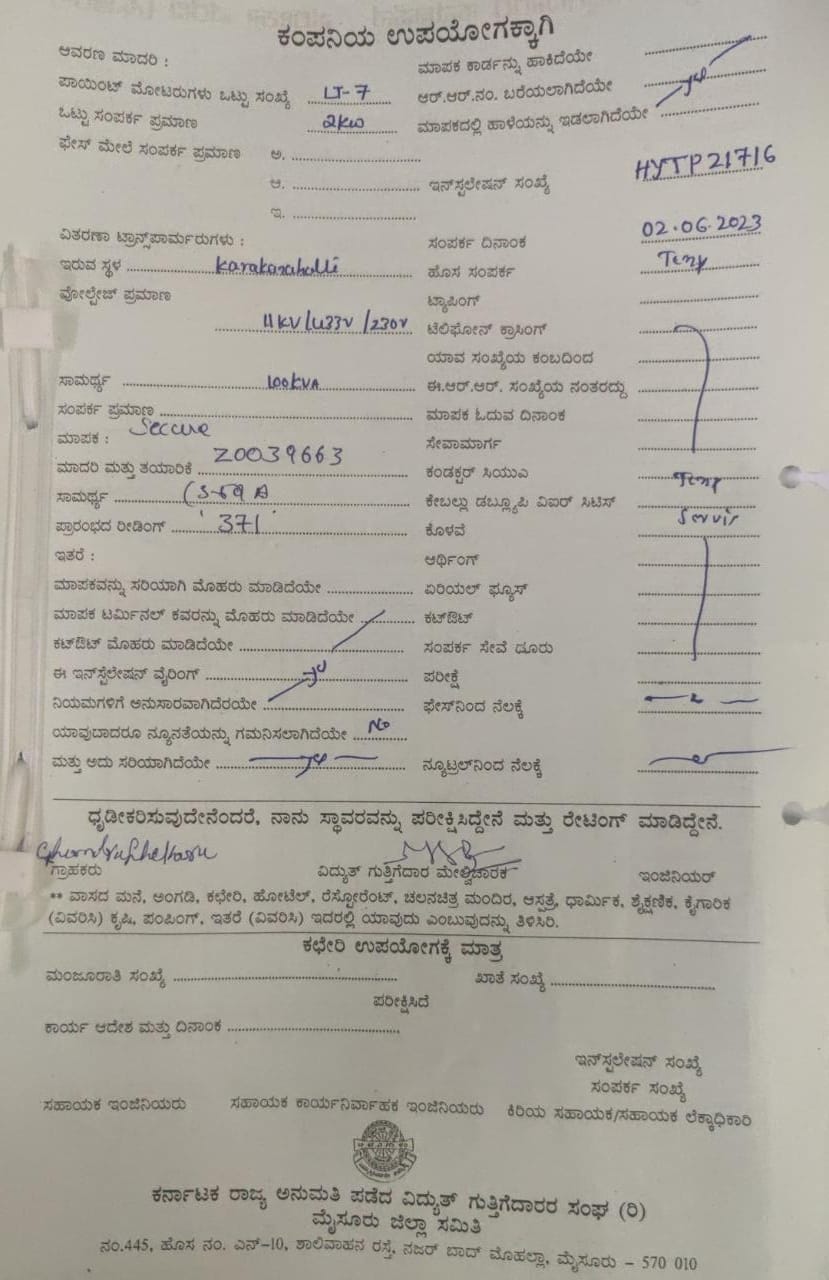 ಕಂಪನಿಯ ಉಪಯೋಗಕ್ಕಾಗಿ
ಆವರಣ ಮಾದರಿ :
ಮಾಪಕ ಕಾರ್ಡನ್ನು ಹಾಕಿದೆಯೇ
ಪಾಯಿಂಟ್ ಮೋಟರುಗಳು ಒಟ್ಟು ಸಂಖ್ಯೆ LT-7
ಆರ್.ಆರ್.ನಂ. ಬರೆಯಲಾಗಿದೆಯೇ
ಒಟ್ಟು ಸಂಪರ್ಕ ಪ್ರಮಾಣ 2kw
ಮಾಪಕದಲ್ಲಿ ಹಾಳೆಯನ್ನು ಇಡಲಾಗಿದೆಯೇ
ಫೇಸ್ ಮೇಲೆ ಸಂಪರ್ಕ ಪ್ರಮಾಣ ಅ.
ಆ.
ಇನ್‌ಸ್ಟಲೇಷನ್ ಸಂಖ್ಯೆ HYTP21716
ಇ.
ವಿತರಣಾ ಟ್ರಾನ್ಸ್‌ಪಾರ್ಮರುಗಳು :
ಸಂಪರ್ಕ ದಿನಾಂಕ 02.06.2023
ಇರುವ ಸ್ಥಳ Karakanahalli
ಹೊಸ ಸಂಪರ್ಕ Temp
ವೋಲ್ಟೇಜ್ ಪ್ರಮಾಣ
ಟ್ಯಾಪಿಂಗ್
11KV/433V/230V
ಟೆಲಿಫೋನ್ ಕ್ರಾಸಿಂಗ್
ಯಾವ ಸಂಖ್ಯೆಯ ಕಂಬದಿಂದ
ಸಾಮರ್ಥ್ಯ 100KVA
ಈ.ಆರ್.ಆರ್. ಸಂಖ್ಯೆಯ ನಂತರದ್ದು
ಸಂಪರ್ಕ ಪ್ರಮಾಣ
ಮಾಪಕ ಓದುವ ದಿನಾಂಕ
ಮಾಪಕ : Secure
ಸೇವಾಮಾರ್ಗ
ಮಾದರಿ ಮತ್ತು ತಯಾರಿಕೆ Z0039663
ಕಂಡಕ್ಟರ್ ಸಿಯುಎ Temp
ಸಾಮರ್ಥ್ಯ
ಕೇಬಲ್ಲು ಡಬ್ಲ್ಯೂಪಿ ವಿಐರ್ ಸಿಟಿಸ್ Servis
ಪ್ರಾರಂಭದ ರೀಡಿಂಗ್ 371
ಕೊಳವೆ
ಇತರೆ :
ಆರ್ಥಿಂಗ್
ಮಾಪಕವನ್ನು ಸರಿಯಾಗಿ ಮೊಹರು ಮಾಡಿದೆಯೇ
ಏರಿಯಲ್ ಫ್ಯೂಸ್
ಮಾಪಕ ಟರ್ಮಿನಲ್ ಕವರನ್ನು ಮೊಹರು ಮಾಡಿದೆಯೇ
ಕಟ್‌ಔಟ್
ಕಟ್‌ಔಟ್ ಮೊಹರು ಮಾಡಿದೆಯೇ
ಸಂಪರ್ಕ ಸೇವೆ ದೂರು
ಈ ಇನ್‌ಸ್ಟಲೇಷನ್ ವೈರಿಂಗ್
ಪರೀಕ್ಷೆ
ನಿಯಮಗಳಿಗೆ ಅನುಸಾರವಾಗಿದೆರಯೇ
ಫೇಸ್‌ನಿಂದ ನೆಲಕ್ಕೆ
ಯಾವುಬಾದರೂ ನ್ಯೂನತೆಯನ್ನು ಗಮನಿಸಲಾಗಿದೆಯೇ No
ಮತ್ತು ಅದು ಸರಿಯಾಗಿದೆಯೇ
ನ್ಯೂಟ್ರಲ್‌ನಿಂದ ನೆಲಕ್ಕೆ
ಧೃಡೀಕರಿಸುವುದೇನೆಂದರೆ, ನಾನು ಸ್ಥಾವರವನ್ನು ಪರೀಕ್ಷಿಸಿದ್ದೇನೆ ಮತ್ತು ರೇಟಿಂಗ್ ಮಾಡಿದ್ದೇನೆ.
ಗ್ರಾಹಕರು ವಿದ್ಯುತ್ ಗುತ್ತಿಗೆದಾರ ಮೇಲ್ವಿಚಾರಕ ಇಂಜಿನಿಯರ್
** ವಾಸದ ಮನೆ, ಅಂಗಡಿ, ಕಛೇರಿ, ಹೋಟೆಲ್, ರೆಸ್ಟೋರೆಂಟ್, ಚಲನಚಿತ್ರ ಮಂದಿರ, ಆಸ್ಪತ್ರೆ, ಧಾರ್ಮಿಕ, ಶೈಕ್ಷಣಿಕ, ಕೈಗಾರಿಕ
(ವಿವರಿಸಿ) ಕೃಷಿ, ಪಂಪಿಂಗ್, ಇತರೆ (ವಿವರಿಸಿ) ಇದರಲ್ಲಿ ಯಾವುದು ಎಂಬುವುದನ್ನು ತಿಳಿಸಿರಿ.
ಕಛೇರಿ ಉಪಯೋಗಕ್ಕೆ ಮಾತ್ರ
ಮಂಜೂರಾತಿ ಸಂಖ್ಯೆ ಖಾತೆ ಸಂಖ್ಯೆ
ಪರೀಕ್ಷಿಸಿದೆ
ಕಾರ್ಯ ಆದೇಶ ಮತ್ತು ದಿನಾಂಕ
ಇನ್‌ಸ್ಟಲೇಷನ್ ಸಂಖ್ಯೆ
ಸಂಪರ್ಕ ಸಂಖ್ಯೆ
ಸಹಾಯಕ ಇಂಜಿನಿಯರು ಸಹಾಯಕ ಕಾರ್ಯನಿರ್ವಾಹಕ ಇಂಜಿನಿಯರು ಕಿರಿಯ ಸಹಾಯಕ/ಸಹಾಯಕ ಲೆಕ್ಕಾಧಿಕಾರಿ
ಕರ್ನಾಟಕ ರಾಜ್ಯ ಅನುಮತಿ ಪಡೆದ ವಿದ್ಯುತ್ ಗುತ್ತಿಗೆದಾರರ ಸಂಘ (ರಿ)
ಮೈಸೂರು ಜಿಲ್ಲಾ ಸಮಿತಿ
ನಂ.445, ಹೊಸ ನಂ. ಎನ್-10, ಶಾಲಿವಾಹನ ರಸ್ತೆ, ನಜರ್ ಬಾದ್ ಮೊಹಲ್ಲಾ, ಮೈಸೂರು - 570 010